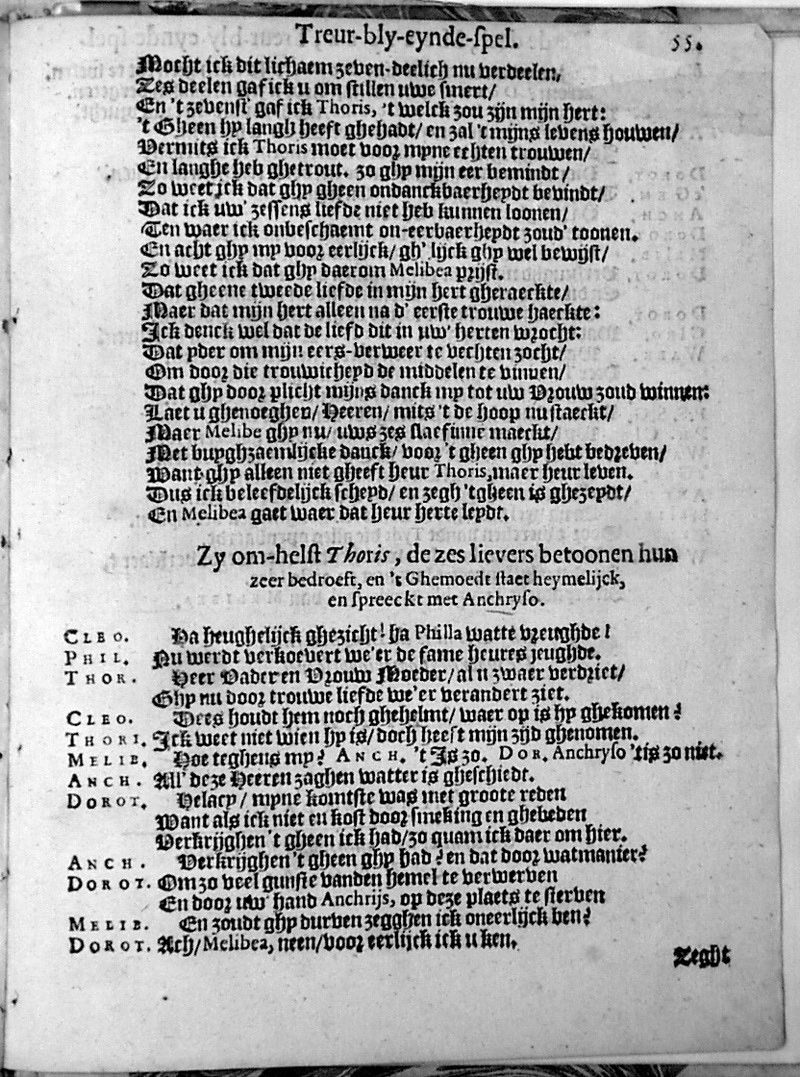 Treur-bly-eynde-spel. 55.
Mocht ick dit lichaem zeven-deelich nu verdeelen,
Zes deelen gaf ick u om stillen uwe smert/
En 't zevenst' gaf ick Thoris, 't welck zou zijn mijn hert:
't Gheen hy langh heeft ghehadt/ en zal 't mijns levens houwen/
Vermits ick Thoris moet voor myne echten trouwen/
En langhe heb ghetrout. zo ghy mijn eer bemindt/
Zo weet ick dat ghy gheen ondanckbaerheydt bevindt/
Dat ick uw' zessens liefde niet heb kunnen loonen/
Ten waer ick onbeschaemt on-eerbaerheydt zoud' toonen.
En acht ghy my voor eerlijck/ gh' lijck ghy wel bewijst/
Zo weet ick dat ghy daerom Melibea prijst.
Dat gheene tweede liefde in mijn hert gheraeckte/
Maer dat mijn hert alleen na d' eerste trouwe haeckte:
Ick denck wel dat de liefd dit in uw' herten wrocht:
Dat yder om mijn eers-verweer te vechten zocht/
Om door die trouwicheyd de middelen te vinnen/
Dat ghy door plicht mijns danck my tot uw Vrouw zoud winnen:
Laet u ghenoeghen/ Heeren/ mits 't de hoop nu staeckt/
Maer Melibe ghy nu/ uws zes slaefinne maeckt/
Met buyghzaemlijcke danck/ voor 't gheen ghy hebt bedreven/
Want ghy alleen niet gheeft heur Thoris, maer heur leven.
Dus ick beleefdelijck scheyd/ en zegh 't gheen is ghezeydt/
En Melibea gaet waer dat heur herte leydt.
Zy om-helst Thoris, de zes lievers betoonen hun
zeer bedroeft, en 't Ghemoedt staet heymelijck,
en spreeckt met Anchryso.
CLEO. Ha heughelijck ghezicht! ha Philla watte vreughde!
PHIL. Nu werdt verkoevert we'er de fame heures jeughde.
THOR. Heer Vader en Vrouw Moeder/ al u zwaer verdriet/
Ghy nu door trouwe liefde we'er verandert ziet.
CLEO. Dees houdt hem noch ghehelmt/ waer op is hy ghekomen?
THORI. Ick weet niet wien hy is/ doch heeft mijn zijd ghenomen.
MELIB. Hoe teghens my? ANCH. 't Is zo. DOR. Anchryso 'tis zo niet.
ANCH. All' deze Heeren zaghen watter is gheschiedt.
DOROT. Helacy/ myne komtste was met groote reden
Want als ick niet en kost door smeking en ghebeden
Verkrijghen 't gheen ick had/ zo quam ick daer om hier.
ANCH. Verkrijghen 't gheen ghy had? en dat door wat manier?
DOROT. Om zo veel gunste vanden hemel te verwerven
En door uw' hand Anchrijs, op deze plaets te sterven
MELIB. En zoudt ghy durven zegghen ick oneerlijck ben?
DOROT. Ach/ Melibea, neen/ voor eerlijck ick u ken.
Zeght